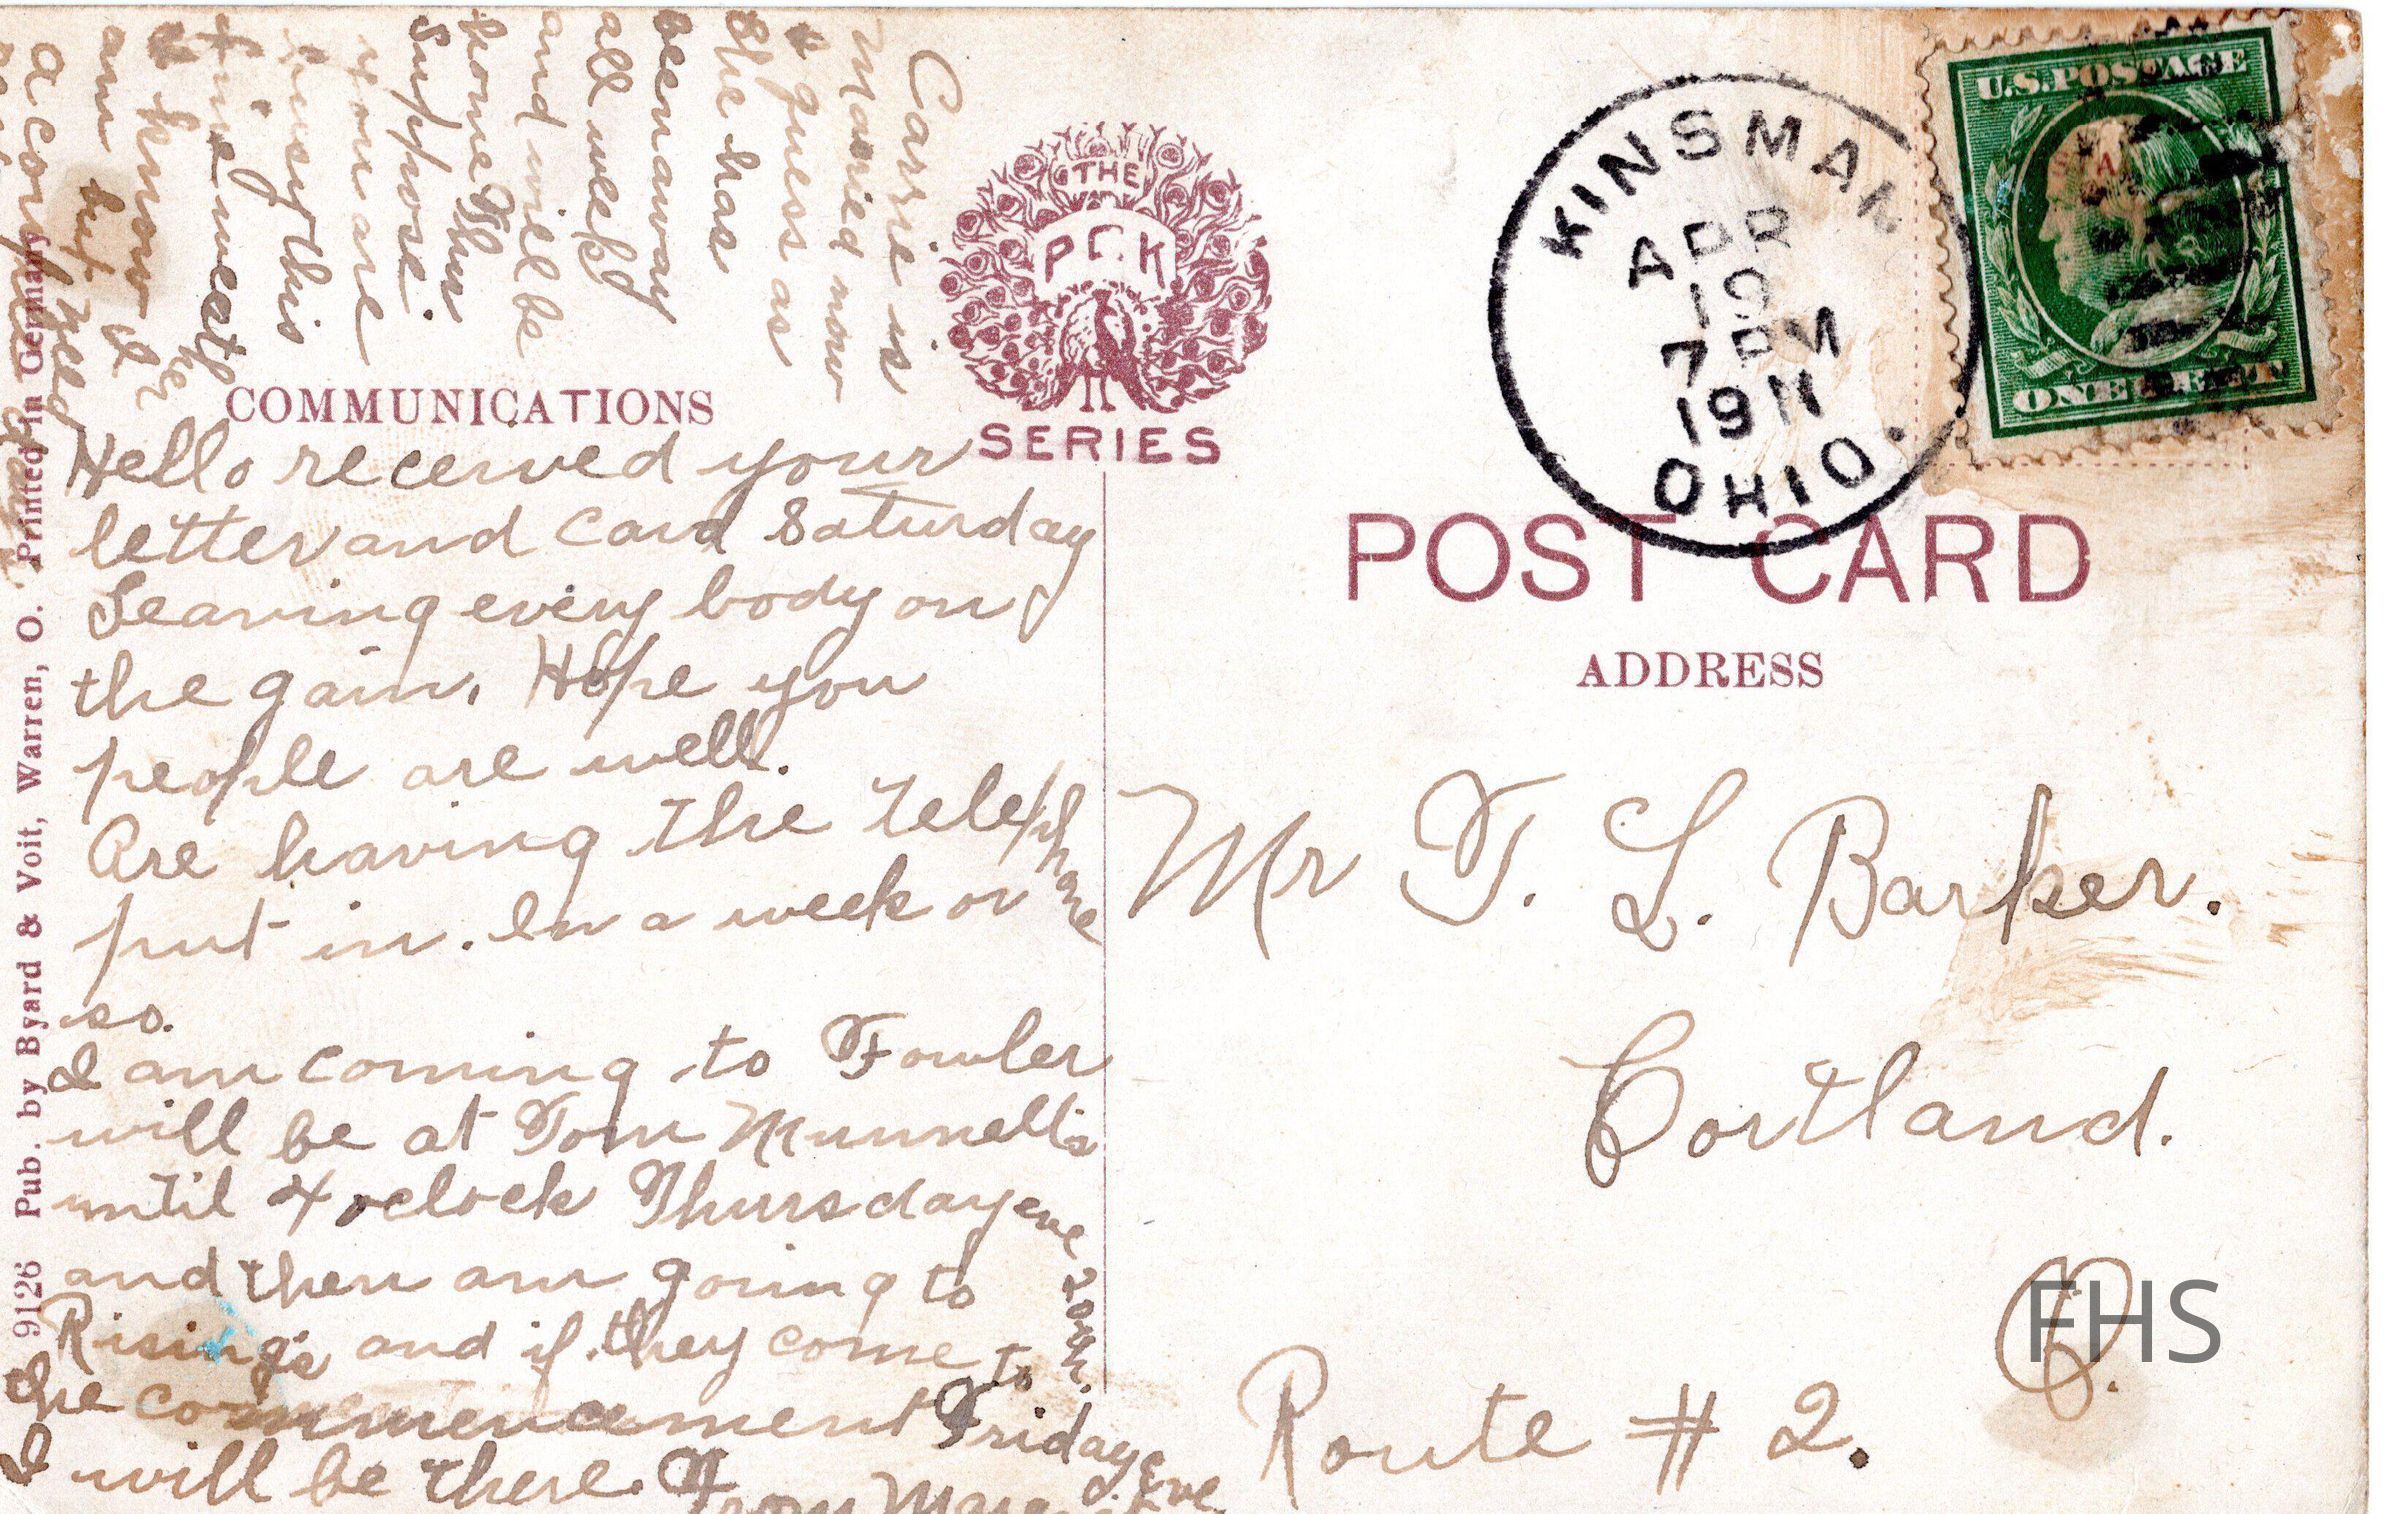 COMMUNICATIONS
Hello received your
letter and card Saturday
Leaving every body on
the gain. Hope you
people are well.
Are having the telephone
put in. In a week or
so.
I am coming to Fowler
will be at Tom Munnell's
until 4 oclock Thursday eve 20th.
and then am going to
Rising's and if they come to
the commencement Friday Eve
I will be there.
From
Carrie is
Maried now
I guess as
she has
been away
all week
and will be
home Thur
Suppose.
you are
busy this
fine weath
er
I know I
am but
a
THE
P.C.K
SERIES
KINSMAN
APR
19
7 PM
1911
OHIO.
U.S. POSTAGE
ONE CENT
POST CARD
ADDRESS
Mr T. L. Barker.
Cortland.
O.
Route # 2.
FHS
9126 Pub. by Byard & Voit, Warren, O. Printed in Germany